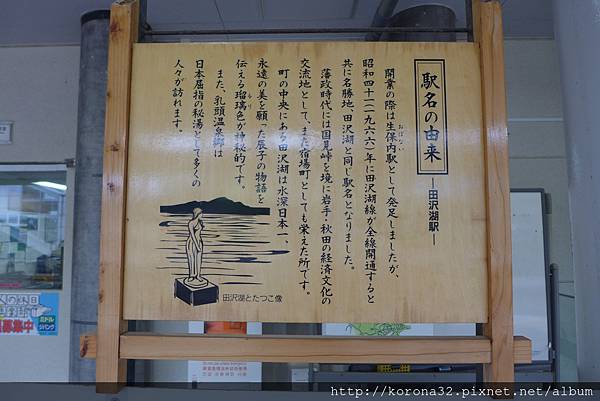 駅名の由来
―田沢湖駅―
開業の際は生保内駅として発足しましたが、
おぼない
昭和四十一(一九六六)年に田沢湖線が全線開通すると
共に名勝地、田沢湖と同じ駅名となりました。
藩政時代には国見峠を境に岩手・秋田の経済文化の
交流地として、また宿場町としても栄えた所です。
町の中央にある田沢湖は水深日本一、
永遠の美を願った辰子の物語を
伝える瑠璃色が神秘的です。
また、乳頭温泉郷は
日本屈指の秘湯として多くの
人々が訪れます。
田沢湖とたつこ像
募集中
http://korona32.pixnet.net/album